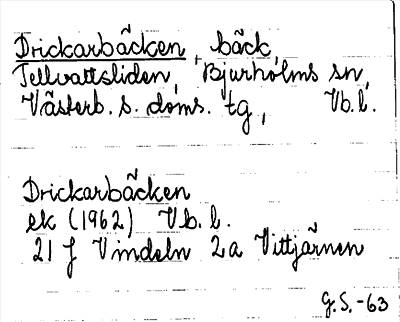 Drickarbäcken, bäck,
Tellvattsliden, Bjurholms sn,
Västerb. s. doms. tg, Vb. l.
Drickarbäcken
ek (1962) Vb. l.
21 J Vindeln 2a Vittjärnen
G.S. -63